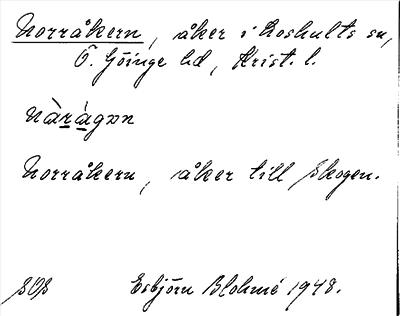 Norråkern, åker i Loshults sn,
Ö. Göinge hd, Krist. l.
Norråkern, åker till skogen.
Esbjörn Blohmé 1948.